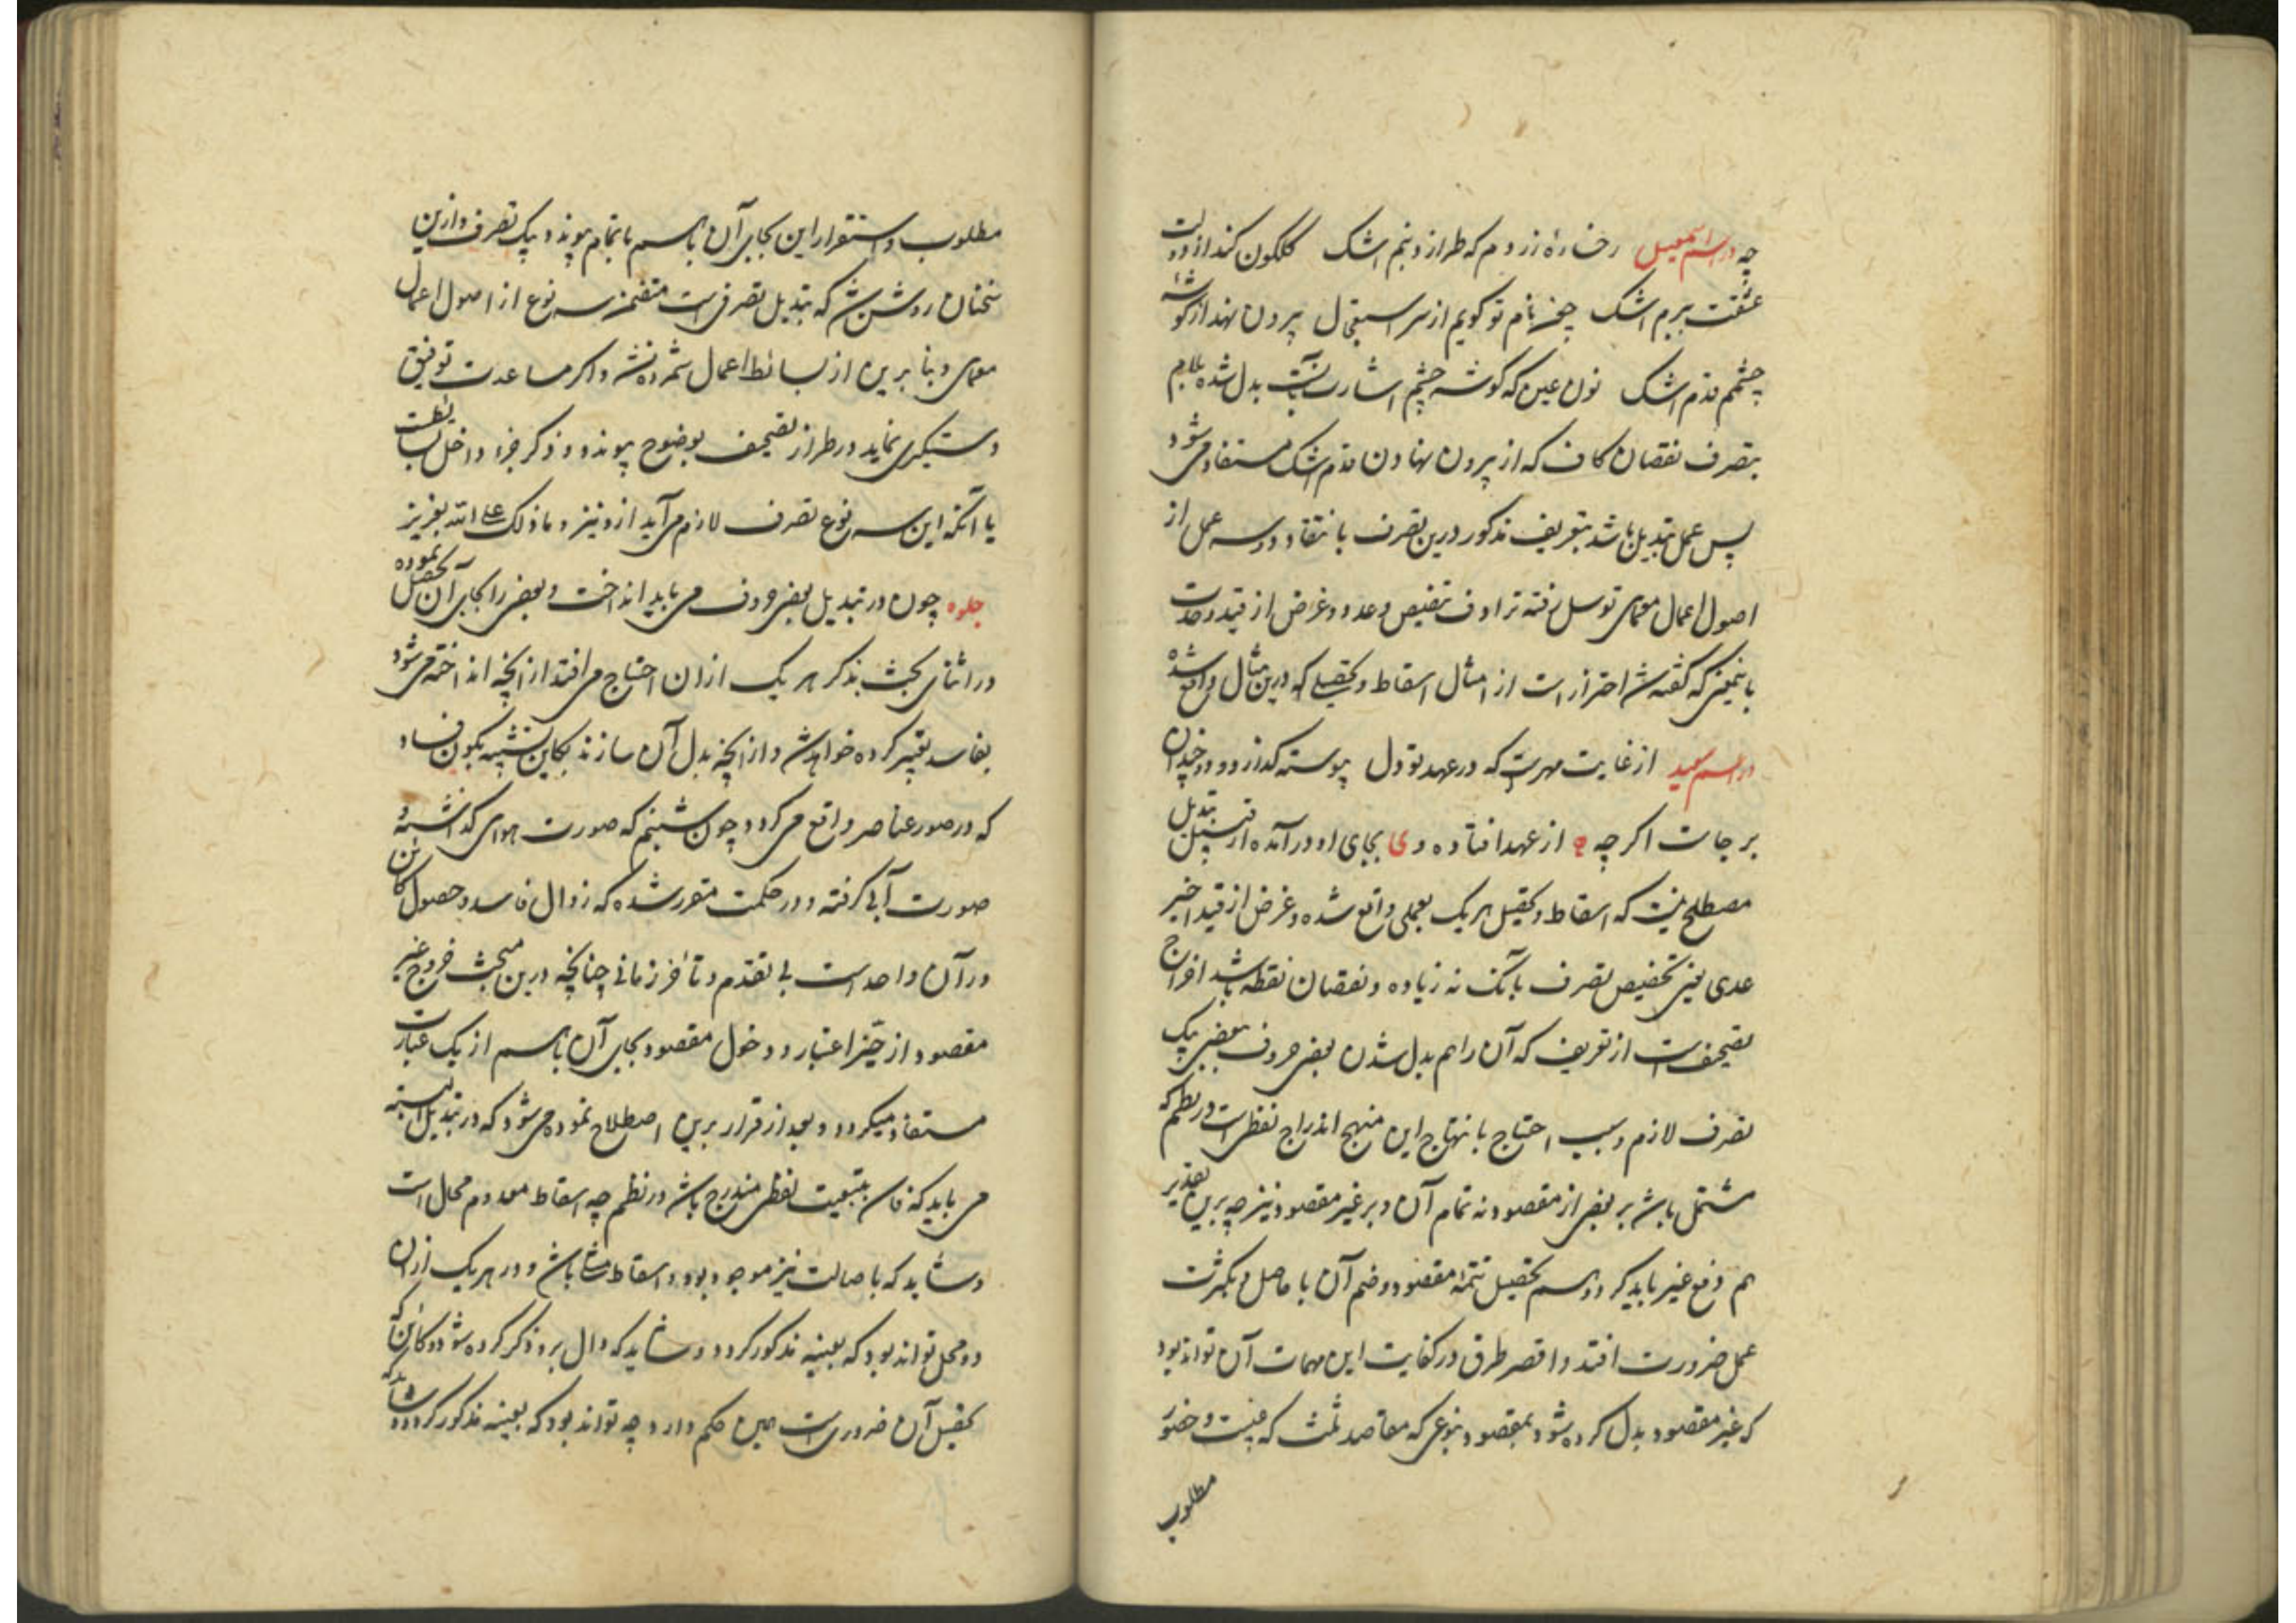 چه در اسم اسمعیل رخساره زردم که طرازد بنم اشک گلگون کند از دولت
عشقت برم اشک چون نام تو گویم از سر استعجال بیرون نهد از گوشهٔ
چشمم قدم اشک نون عین که گوشه چشم اشارت بآنست بدل شده بلام
بتصرف نقصان کاف که از بیرون نهادن قدم اشک مستفاد می شود
پس عمل تبدیل باشد بتعریف مذکور درین تصرف بانتقاد و دو سه عمل از
اصول اعمال معمای توسل رفته ترادف و تنصیص و عدد و غرض از قید وحدت
باینمعنی که گفته شد احتراز است از امثال اسقاط و تحصیلی که درین مثال واقع شده
در اسم سعید از غایت مهرت که در عهد تو دل پیوسته گدازد و دو چندان
بر جاست اگر چه ه از عهد افتاده و ی بجای او در آمده از قبیل تبدیل
مصطلح نیست که اسقاط و تحصیل هر یک بعملی واقع شده و غرض از قید اخیر
عدمی یعنی تخصیص تصرف بآنک نه زیاده و نقصان نقطه باشد اخراج
تصحیف است از تعریف که آن را هم بدل شدن بعضی حروف ببعضی بیک
تصرف لازم و سبب احتیاج بانتهاج این منهج اندراج لفظیست در نظم که
مشتمل باشد بر بعضی از مقصود نه تمام آن و بر غیر مقصود نیز چه برین تقدیر
هم دفع غیر باید کرد و هم تحصیل تتمه مقصود و ضم آن با حاصل و بکثرت
عمل ضرورت افتد و اقصر طرق در کفایت این مهمات آن تواند بود
که غیر مقصود بدل کرده شود بمقصود بنوعی که مقاصد ثلث که غیبت و حضور
مطلوب
مطلوب و استقرار این بجای آن باسم بتمام پیوندد بیک تصرف و ازین
سخنان روشن شد که تبدیل تصرفی است متضمن سه نوع از اصول اعمال
معمای و بنا برین از بسائط اعمال شمرده نشد و اگر مساعدت توفیق
دستگیری نماید در طراز تصحیف بوضوح پیوندد و ذکر جزو داخل بساطت
با آنکه این سه نوع تصرف لازم می آید ازو نیز و ما ذلک علی الله بعزیز
جلوه چون در تبدیل بعضی حروف می باید انداخت و بعضی را بجای آن تحصیل نموده
در اثنای بحث بذکر هر یک از آن احتیاج می افتد از انچه انداخته می شود
بفاسد تعبیر کرده خواهد شد و از انچه بدل آن سازند بکاین تشبیه بکون و فساد
که در صور عناصر واقع می گردد چون شبنم که صورت هوای گذاشته و
صورت آبی گرفته و در حکمت مقرر شده که زوال فاسد و حصول کائن
در آن واحد است بی تقدم و تأخر زمانی چنانچه درین مبحث خروج غیر
مقصود از حیز اعتبار و دخول مقصود بجای آن باسم از یک عبارت
مستفاد میگردد و بعد از قرار برین اصطلاح نموده می شود که در تبدیل البته
می باید که فاسد بتبعیت لفظی مندرج باشد در نظم چه اسقاط معدوم محال است
و شاید که باصالت نیز موجود بود و اسقاط باشد و در هر یک از آن
دو محل تواند بود که بعینه مذکور گردد و شاید که دال برو ذکر کرده شود و کائن که
تحصیل آن ضروری است همین حکم دارد چه تواند بود که بعینه مذکور گردد و شاید که